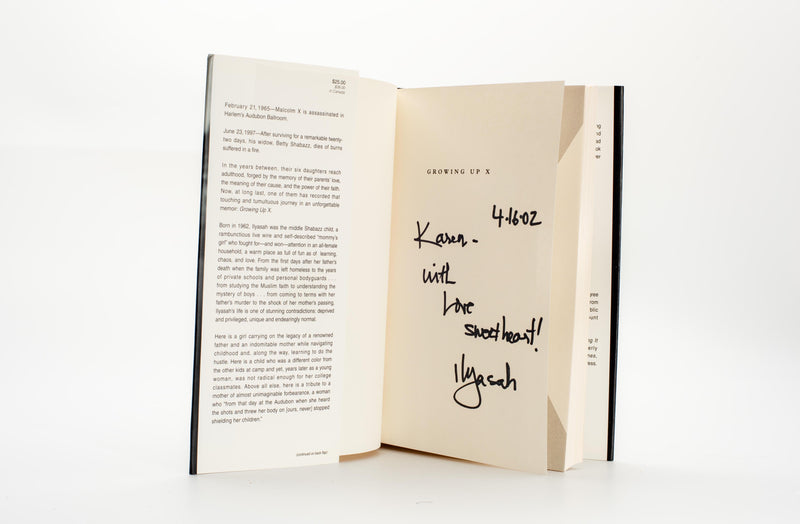 $25.00
$38.00
in Canada
February 21, 1965—Malcolm X is assassinated in
Harlem's Audubon Ballroom.
June 23, 1997—After surviving for a remarkable twenty-
two days, his widow, Betty Shabazz, dies of burns
suffered in a fire.
In the years between, their six daughters reach
adulthood, forged by the memory of their parents' love,
the meaning of their cause, and the power of their faith.
Now, at long last, one of them has recorded that
touching and tumultuous journey in an unforgettable
memoir: Growing Up X.
Born in 1962, Ilyasah was the middle Shabazz child, a
rambunctious live wire and self-described "mommy's
girl" who fought for—and won—attention in an all-female
household, a warm place as full of fun as of learning,
chaos, and love. From the first days after her father's
death when the family was left homeless to the years
of private schools and personal bodyguards . . .
from studying the Muslim faith to understanding the
mystery of boys . . . from coming to terms with her
father's murder to the shock of her mother's passing,
Ilyasah's life is one of stunning contradictions: deprived
and privileged, unique and endearingly normal.
Here is a girl carrying on the legacy of a renowned
father and an indomitable mother while navigating
childhood and, along the way, learning to do the
hustle. Here is a child who was a different color from
the other kids at camp and yet, years later as a young
woman, was not radical enough for her college
classmates. Above all else, here is a tribute to a
mother of almost unimaginable forbearance, a woman
who "from that day at the Audubon when she heard
the shots and threw her body on [ours, never] stopped
shielding her children."
(continued on back flap)
GROWING UP X
4·16·02
Karen -
with
Love
sweetheart!
Ilyasah